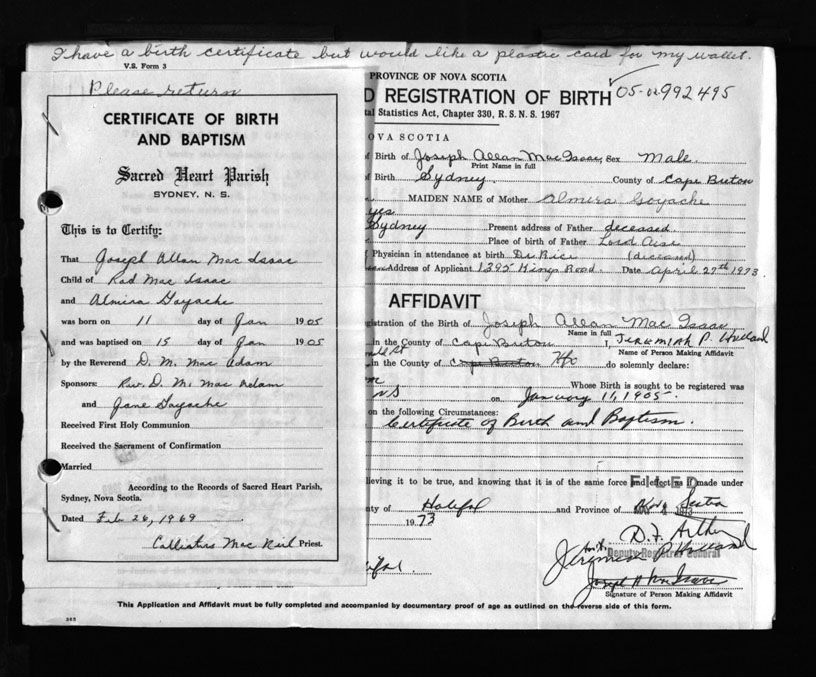 I have a birth certificate but would like a plastic card for my wallet.
V.S. Form 3
Please return
CERTIFICATE OF BIRTH
AND BAPTISM
Sacred Heart Parish
SYDNEY, N. S.
This is to Certify:
That Joseph Allan Mac Isaac
Child of Rod Mac Isaac
and Almira Goyache
was born on 11 day of Jan 1905
and was baptised on 15 day of Jan 1905
by the Reverend D. M. Mac Adam
Sponsors: Rev. D. M. Mac Adam
and Jane Goyache
Received First Holy Communion
Received the Sacrament of Confirmation
Married
According to the Records of Sacred Heart Parish,
Sydney, Nova Scotia.
Dated Feb 26, 1969
Callistus Mac Neil Priest.
PROVINCE OF NOVA SCOTIA
D REGISTRATION OF BIRTH 05-02-992495
tal Statistics Act, Chapter 330, R. S. N. S. 1967
OVA SCOTIA
of Birth of Joseph Allan Mac Isaac Sex Male.
Print Name in full
f Birth Sydney. County of Cape Breton
MAIDEN NAME of Mother Almira Goyache
yes
Sydney Present address of Father deceased.
Place of birth of Father
Physician in attendance at birth Dr Rice (deceased)
Address of Applicant 1395 Kings Road. Date April 27th 1973.
AFFIDAVIT
gistration of the Birth of Joseph Allan Mac Isaac
Name in full
in the County of Cape Breton I, Jeremiah P. Holland
Name of Person Making Affidavit
in the County of Cape Breton Hfx do solemnly declare:
Whose Birth is sought to be registered was
NS on January 11, 1905.
on the following Circumstances:
Certificate of Birth and Baptism.
lieving it to be true, and knowing that it is of the same force and effect as if made under
FILED
ty of Halifax and Province of Nova Scotia
1973
D. F. Arthur
Deputy Registrar General
Jeremiah P Holland
Joseph A Mac Isaac
Signature of Person Making Affidavit
This Application and Affidavit must be fully completed and accompanied by documentary proof of age as outlined on the reverse side of this form.